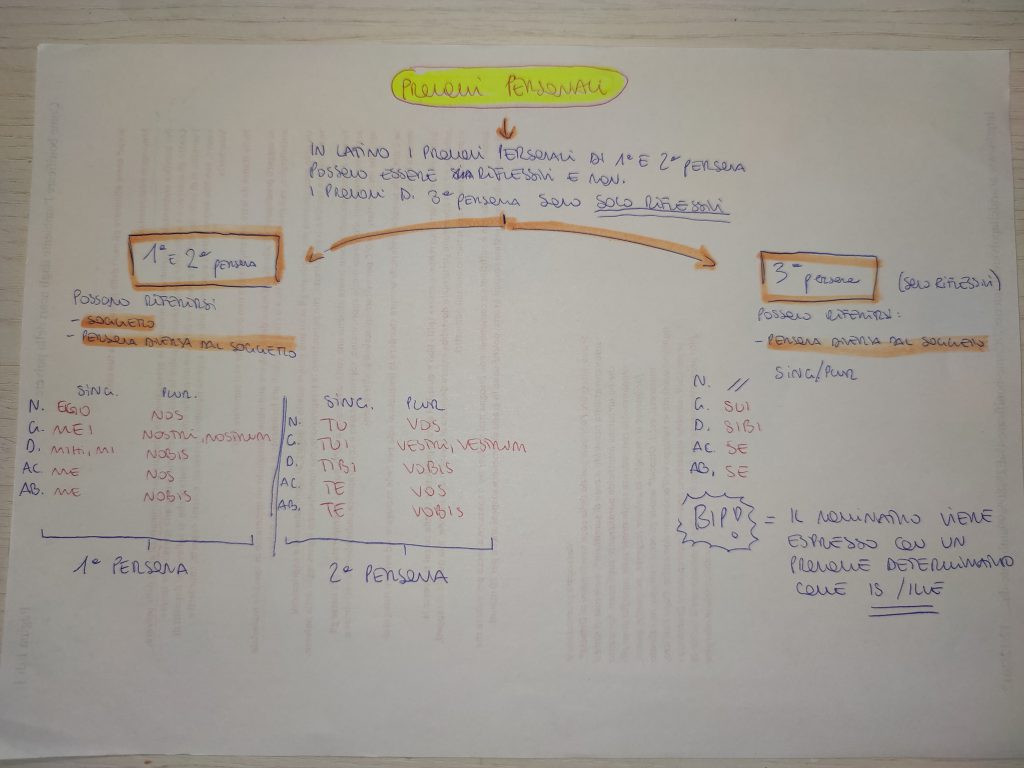 PRONOMI PERSONALI
IN LATINO I PRONOMI PERSONALI DI 1ª E 2ª PERSONA
POSSONO ESSERE RIFLESSIVI E NON.
I PRONOMI DI 3ª PERSONA SONO SOLO RIFLESSIVI
1ª E 2ª PERSONA
POSSONO RIFERIRSI
- SOGGETTO
- PERSONA DIVERSA DAL SOGGETTO
SING. PLUR.
N. EGO NOS
G. MEI NOSTRI, NOSTRUM
D. MIHI, MI NOBIS
AC. ME NOS
AB. ME NOBIS
1ª PERSONA
SING. PLUR
N. TU VOS
G. TUI VESTRI, VESTRUM
D. TIBI VOBIS
AC. TE VOS
AB. TE VOBIS
2ª PERSONA
3ª PERSONA (SOLO RIFLESSIVI)
POSSONO RIFERIRSI:
- PERSONA DIVERSA DAL SOGGETTO
SING/PLUR
N. //
G. SUI
D. SIBI
AC. SE
AB. SE
= IL NOMINATIVO VIENE
ESPRESSO CON UN
PRONOME DETERMINATIVO
COME IS / ILLE